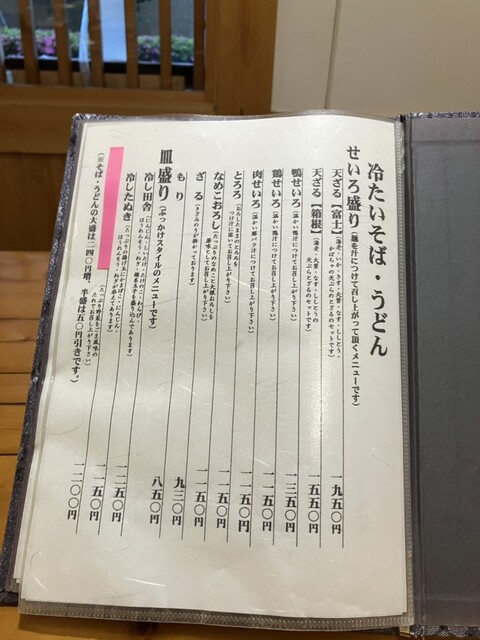 冷たいそば・うどん
せいろ盛り（麺を汁につけて召し上がって頂くメニューです）
天ざる【富士】（海老・いか・きす・大葉・なす・ししとう・かぼちゃの天ぷらとざるのセットです） 一九五〇円
天ざる【箱根】（海老・大葉・なす・ししとうの天ぷらとざるのセットです） 一五五〇円
鴨せいろ（温かい鴨汁につけてお召し上がり下さい） 一三五〇円
鶏せいろ（温かい鶏汁につけてお召し上がり下さい） 一一五〇円
肉せいろ（温かい豚バラ汁につけてお召し上がり下さい） 一一五〇円
とろろ（おろしたままのとろろをつけ汁に溶いてお召し上がり下さい） 一二五〇円
なめこおろし（たっぷりのなめこと大根おろしを薬味としてお召し上がり下さい） 一一五〇円
ざる（きざみのりが掛かっております） 九三〇円
もり 八五〇円
皿盛り（ぶっかけスタイルのメニューです）
冷し田舎 一二五〇円
冷したぬき 一一五〇円
（たっぷり野菜をごま風味のたれでお召し上がり下さい） 一二〇〇円
（※そば・うどんの大盛は二四〇円増 半盛は五〇円引きです。）